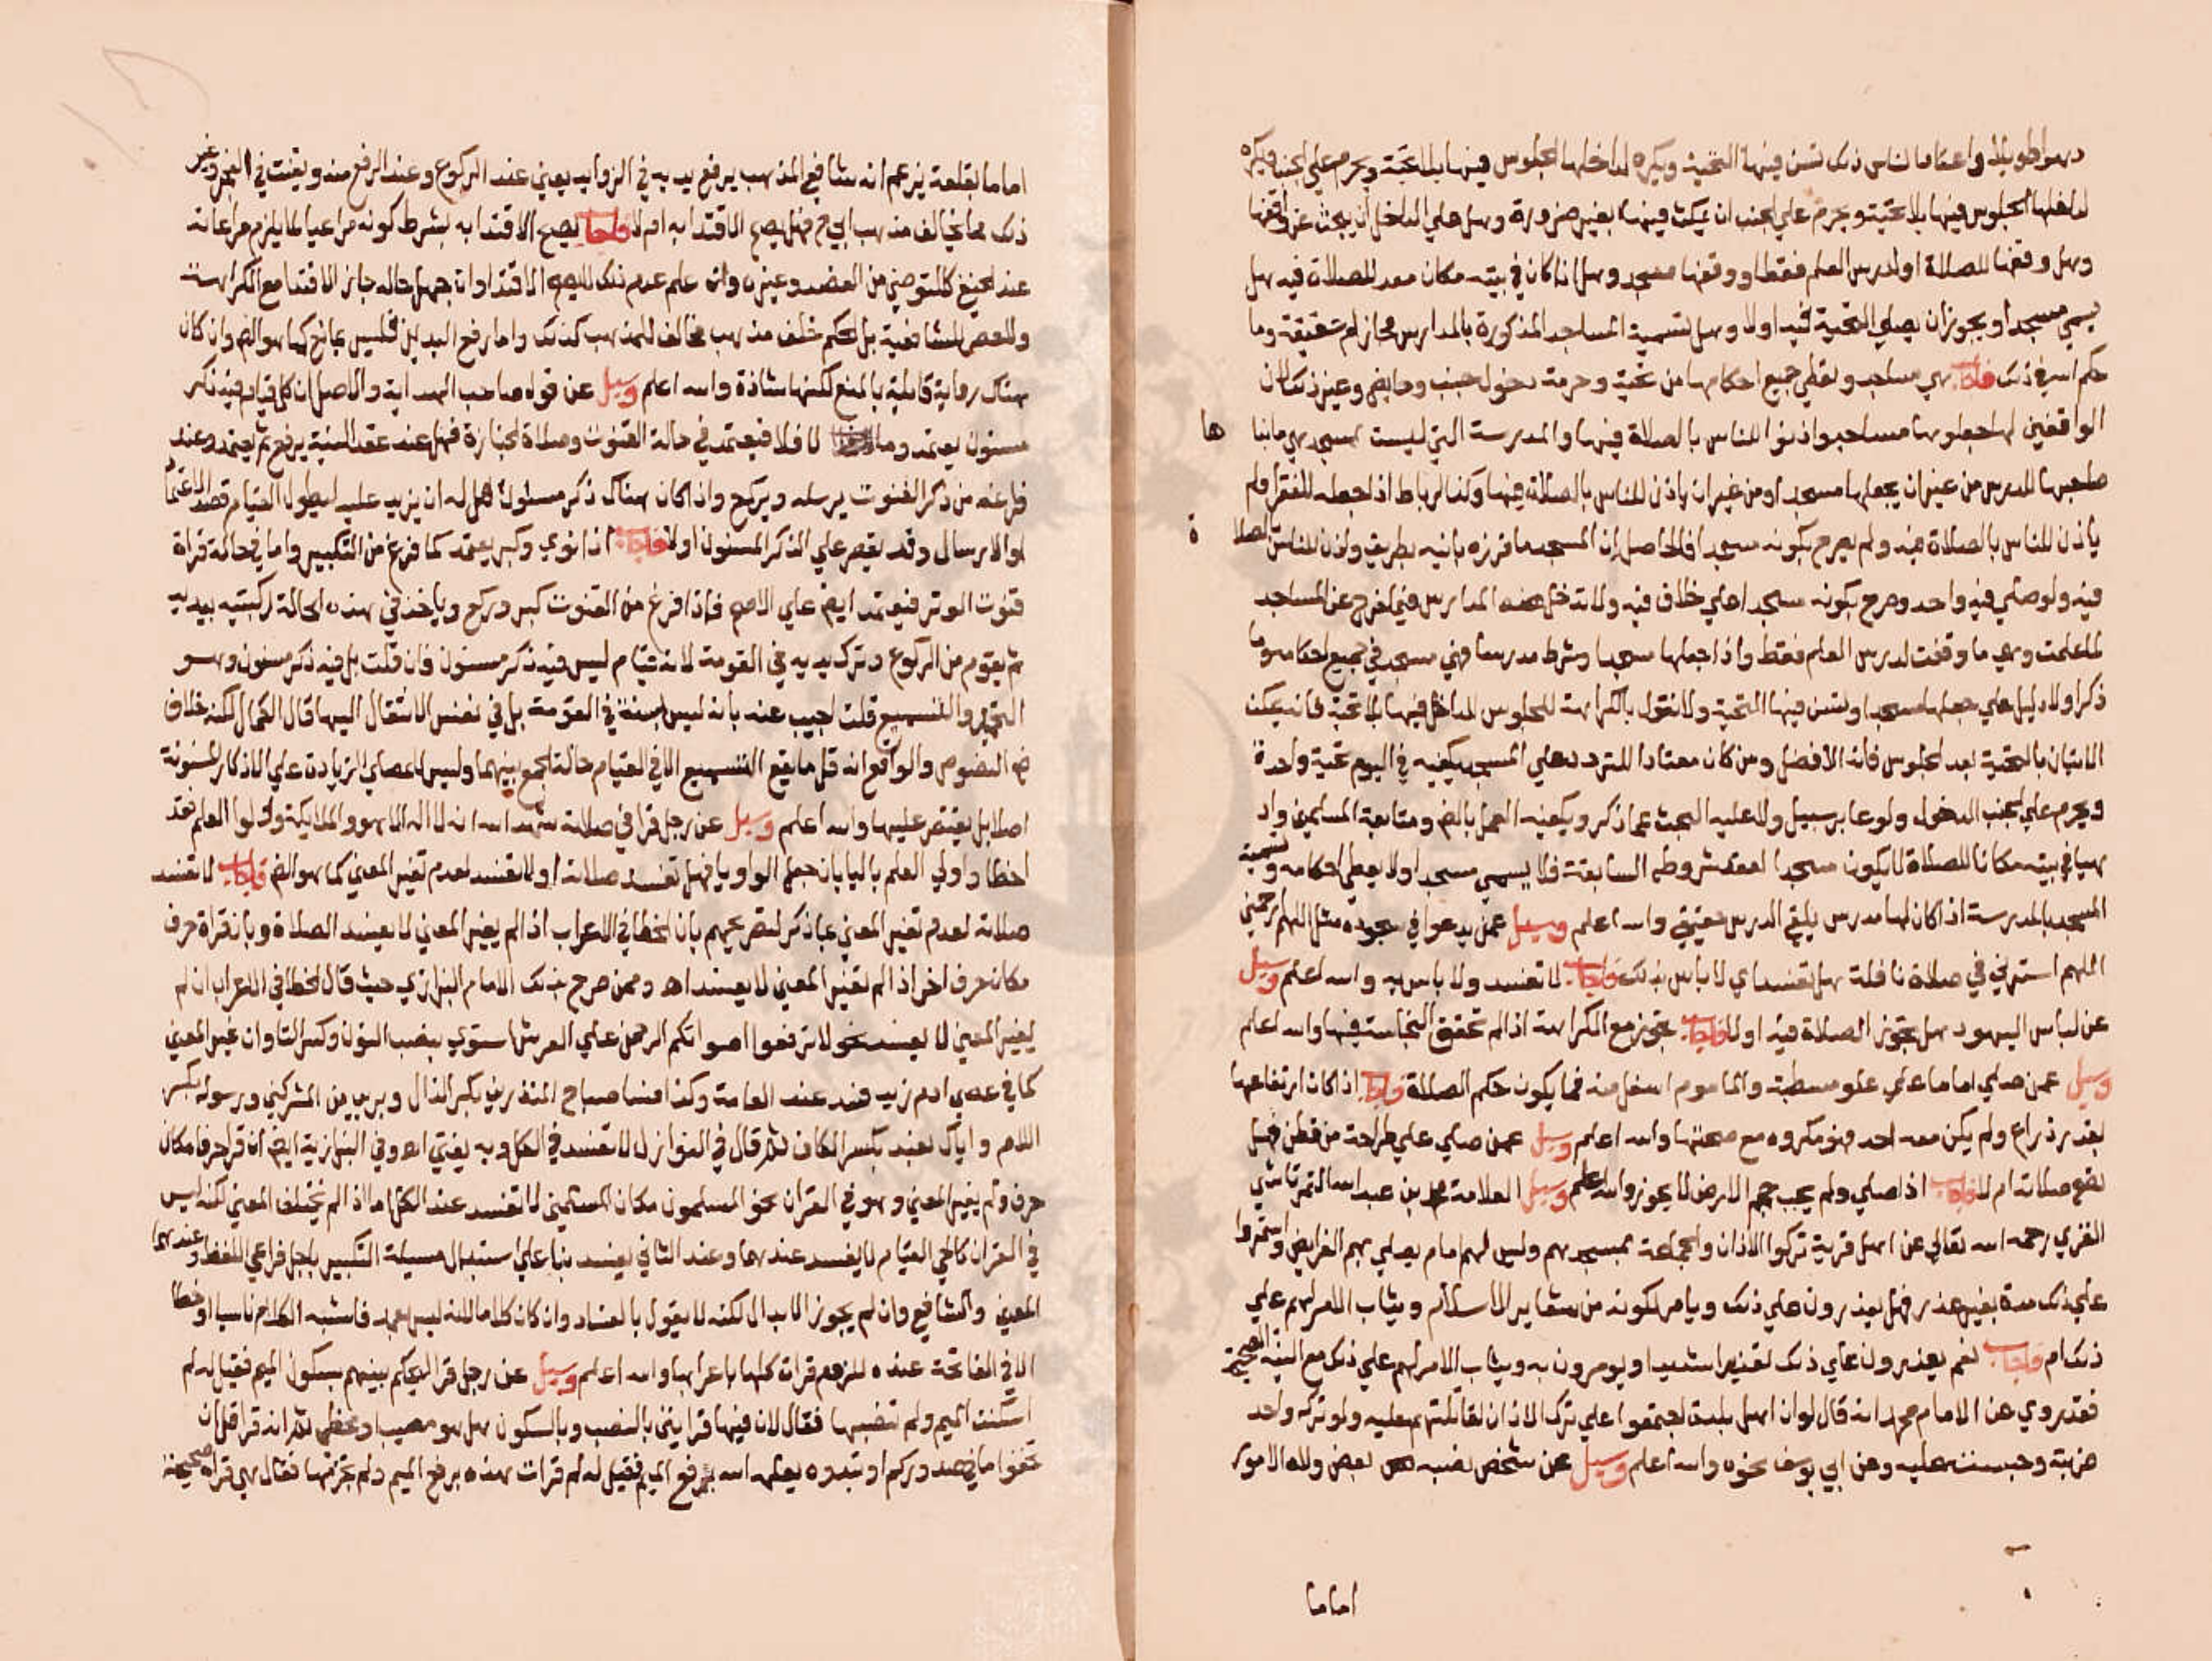 دهورا طويلة واعتادا لناس ذلك تسن فيها التحية ويكره لداخلها الجلوس فيها بلا تحية ويحرم علي الجنب ويكره
لداخلها الجلوس فيها بلا تحية ويحرم علي الجنب ان يمكث فيها بغير ضرورة وهل علي الداخل ان يبحث عن واقفها
وهل وقفها للصلاة او لدرس العلم فقط او وقفها مسجد وهل اذا كان في بيته مكان معد للصلاة فيه هل
يسمي مسجد او يجوز ان يصلي التحية فيه اولا وهل تسمية المساجد المذكورة بالمدارس مجاز ام حقيقة وما
حكم الله في ذلك فاجاب هي مساجد وتعطي جميع احكامها من تحية وحرمة دخول جنب وحايض وغير ذلك لان
الواقفين لها جعلوها مساجد واذنوا للناس بالصلاة فيها والمدرسة التي ليست بمسجد هي ما بنا ها
صاحبها للدرس من غير ان يجعلها مسجد او من غير ان ياذن للناس بالصلاة فيها وكذا الرباط اذا جعله للفقرا ولم
ياذن للناس بالصلاة فيه ولم يصرح بكونه مسجدا فالحاصل ان المسجد ما فرزه بانيه بطريقه واذن للناس بالصلا ة
فيه ولو صلي فيه واحد وصرح بكونه مسجدا علي خلاف فيه ولا تدخل هذه المدارس فيما يخرج عن المساجد
لما علمت وهي ما وقفت لدرس العلم فقط واذا جعلها مسجدا وشرط مدرسا فهي مسجد في جميع احكامه وما
ذكر اولا دليل علي جعلها مسجدا وتسن فيها التحية ولا نقول بالكراهة للجلوس لداخل فيها بلا تحية فانه يمكن
الاتيان بالتحية بعد الجلوس فانه الافضل ومن كان معتادا للتردد علي المسجد يكفيه في اليوم تحية واحدة
ويحرم علي الجنب الدخول ولو عابر سبيل ولا عليه البحث عما ذكر ويكفيه العمل بالض ومتابعة المسلمين واذ
هيا في بيته مكانا للصلاة لا يكون مسجدا لفقد شروطه السابقة فلا يسمي مسجد اولا يعطي احكامه وتسمية
المسجد بالمدرسة اذا كان لها مدرس يلقي الدرس حقيقي والله اعلم وسيل عمن يدعوا في سجوده مثل اللهم ارحمني
اللهم استرني في صلاة نافلة هل تفسد اي لا باس بذلك فاجاب لا تفسد ولا باس به والله اعلم وسيل
عن لباس اليهود هل تجوز الصلاة فيه اولا فاجاب تجوز مع الكراهة اذا لم تحقق النجاسة فيها والله اعلم
وسيل عمن صلي اماما علي علو مسطبة والماموم اسفل منه فما يكون حكم الصلاة فاجاب اذا كان ارتفاعها
بقدر ذراع ولم يكن معه احد فهو مكروه مع صحتها والله اعلم وسيل عمن صلي علي طراحة من قطن فهل
تصح صلاته ام لا فاجاب اذا صلي ولم يجب حجم الارض لا يجوز والله اعلم وسيل العلامة محمد بن عبد الله التمرتاشي
الغزي رحمه الله تعالي عن اهل قرية تركوا الاذان والجماعة بمسجدهم وليس لهم امام يصلي بهم الفرايض واستمروا
علي ذلك مدة بغير عذر فهل يعذرون علي ذلك ويامر لكونه من شعاير الاسلام ويثاب الامر لهم علي
ذلك ام فاجاب نعم يعذرون علي ذلك تعذيرا شديدا ويومرون به ويثاب الامر لهم علي ذلك مع النية الصحيحة
فقد روي عن الامام محمد انه قال لوان اهل بلدة اجتمعوا علي ترك الاذان لقاتلتهم عليه ولو تركه واحد
ضربته وحبسته عليه وعن ابي يوسف نحوه والله اعلم وسيل عن شخص نصبه بعض ولاة الامور
اماما
اماما بقلعة يزعم انه شافعي المذهب يرفع يديه في الزوايد يعني عند الركوع وعند الرفع منه ويقنت في الفجر وغير
ذلك مما يخالف مذهب ابي ح فهل يصح الاقتدا به ام لا فاجاب يصح الاقتدا به بشرط كونه مراعيا لما يلزم مراعاته
عند الحنفي كالتوضي من الفصد وغيره وان علم عدم ذلك لا يصح الاقتدا وان جهل حاله جاز الاقتدا مع الكراهة
ولا خصوص للشافعية بل حكم خلف مذهب مخالف للمذهب كذلك واما رفع اليدين فليس بمانع كما هو الض وان كان
هناك رواية قايلة بالمنع لكنها شاذة والله اعلم وسيل عن قوله صاحب الهداية والاصل ان كل قيام فيه ذكر
مسنون يعتمد وما لا فلا فيعتمد في حالة القنوت وصلاة الجنازة فهل عند عقد النية يرفع ثم يعتمد وعند
فراغه من ذكر القنوت يرسله ويركع واذا كان هناك ذكر مسنون هل له ان يزيد عليه ليطول القيام قصد الاعتماد
او الارسال وقد يقصر علي الذكر المسنون اولا فاجاب اذا نوي وكبر يعتمد كما فرغ من التكبير واما في حالة قراة
قنوت الوتر فيعتمد ايض علي الاصح فاذا فرغ من القنوت كبر وركع وياخذ في هذه الحالة ركبتيه بيديه
ثم يقوم من الركوع وترك يديه في القومة لانه قيام ليس فيه ذكر مسنون فان قلت بل فيه ذكر مسنون وهو
التحميد والتسميع قلت اجيب عنه بانه ليس سنة في القومة بل في نفس الانتقال اليها قال الكمال لكنه خلاف
ض النصوص والواقع انه قل ما يقع التسميع الا في القيام حالة الجمع بينهما وليس للمصلي الزيادة علي الاذكار المسنونة
اصلا بل يقتصر عليها والله اعلم وسيل عن رجل قرا في صلاته شهد الله انه لا اله الا هو والملايكة واولوا العلم فقد
اخطا واولي العلم باليا بان جعل الواو يا فهل تفسد صلاته اولا تفسد لعدم تغير المعني كما هو الض فاجاب لا تفسد
صلاته لعدم تغير المعني بما ذكر لتصريحهم بان الخطا في الاعراب اذا لم يغير المعني لا يفسد الصلاة وبان قراة حرف
مكان حرف اخر اذا لم تغير المعني لا يفسد اه وممن صرح بذلك الامام البزازي حيث قال الخطا في الاعراب ان لم
يغير المعني لا يفسد نحو لا ترفعوا اصواتكم الرحمن علي العرش استوي بنصب النون وكسر التا وان غير المعني
كما في عصي ادم ربه فسد عند العامة وكذا فسا صباح المنذرين بكسر الذال وبري من المشركين ورسوله بكسر
اللام واياك نعبد بكسر الكاف ثم قال في النوازل لا تفسد في الكل وبه يفتي اه وفي البزازية ايض ان قرا حرفا مكان
حرف ولم يغير المعني وهو في القران نحو المسلمون مكان المسلمين لا تفسد عند الكل اما اذا لم يختلف المعني لكنه ليس
في القران كالحي القيام لا يفسد عندهما وعند الثاني يفسد بنا علي استبدال مسيلة التكبير باجل فراعي اللفظ وعندهما
المعني والشافعي وان لم يجوز الابدال لكنه لا يقول بالفساد وان كان كلاما لانه ليس بعمد فاشبه الكلام ناسيا او خطا
الا في الفاتحة عنده للزوم قرات كلها باعرابها والله اعلم وسيل عن رجل قرا ليحكم بينهم بسكون الميم فقيل له لم
اسكنت الميم ولم تنصبها فقال لان فيها قرايتين بالنصب وبالسكون هل هو مصيب او مخطي ثم انه قرا قل ان
تخفوا ما في صدوركم او تبدوه يعلمه الله برفع الميم فقيل له لم قرات هذه برفع الميم ولم تجزمها فقال هي قراة صحيحة